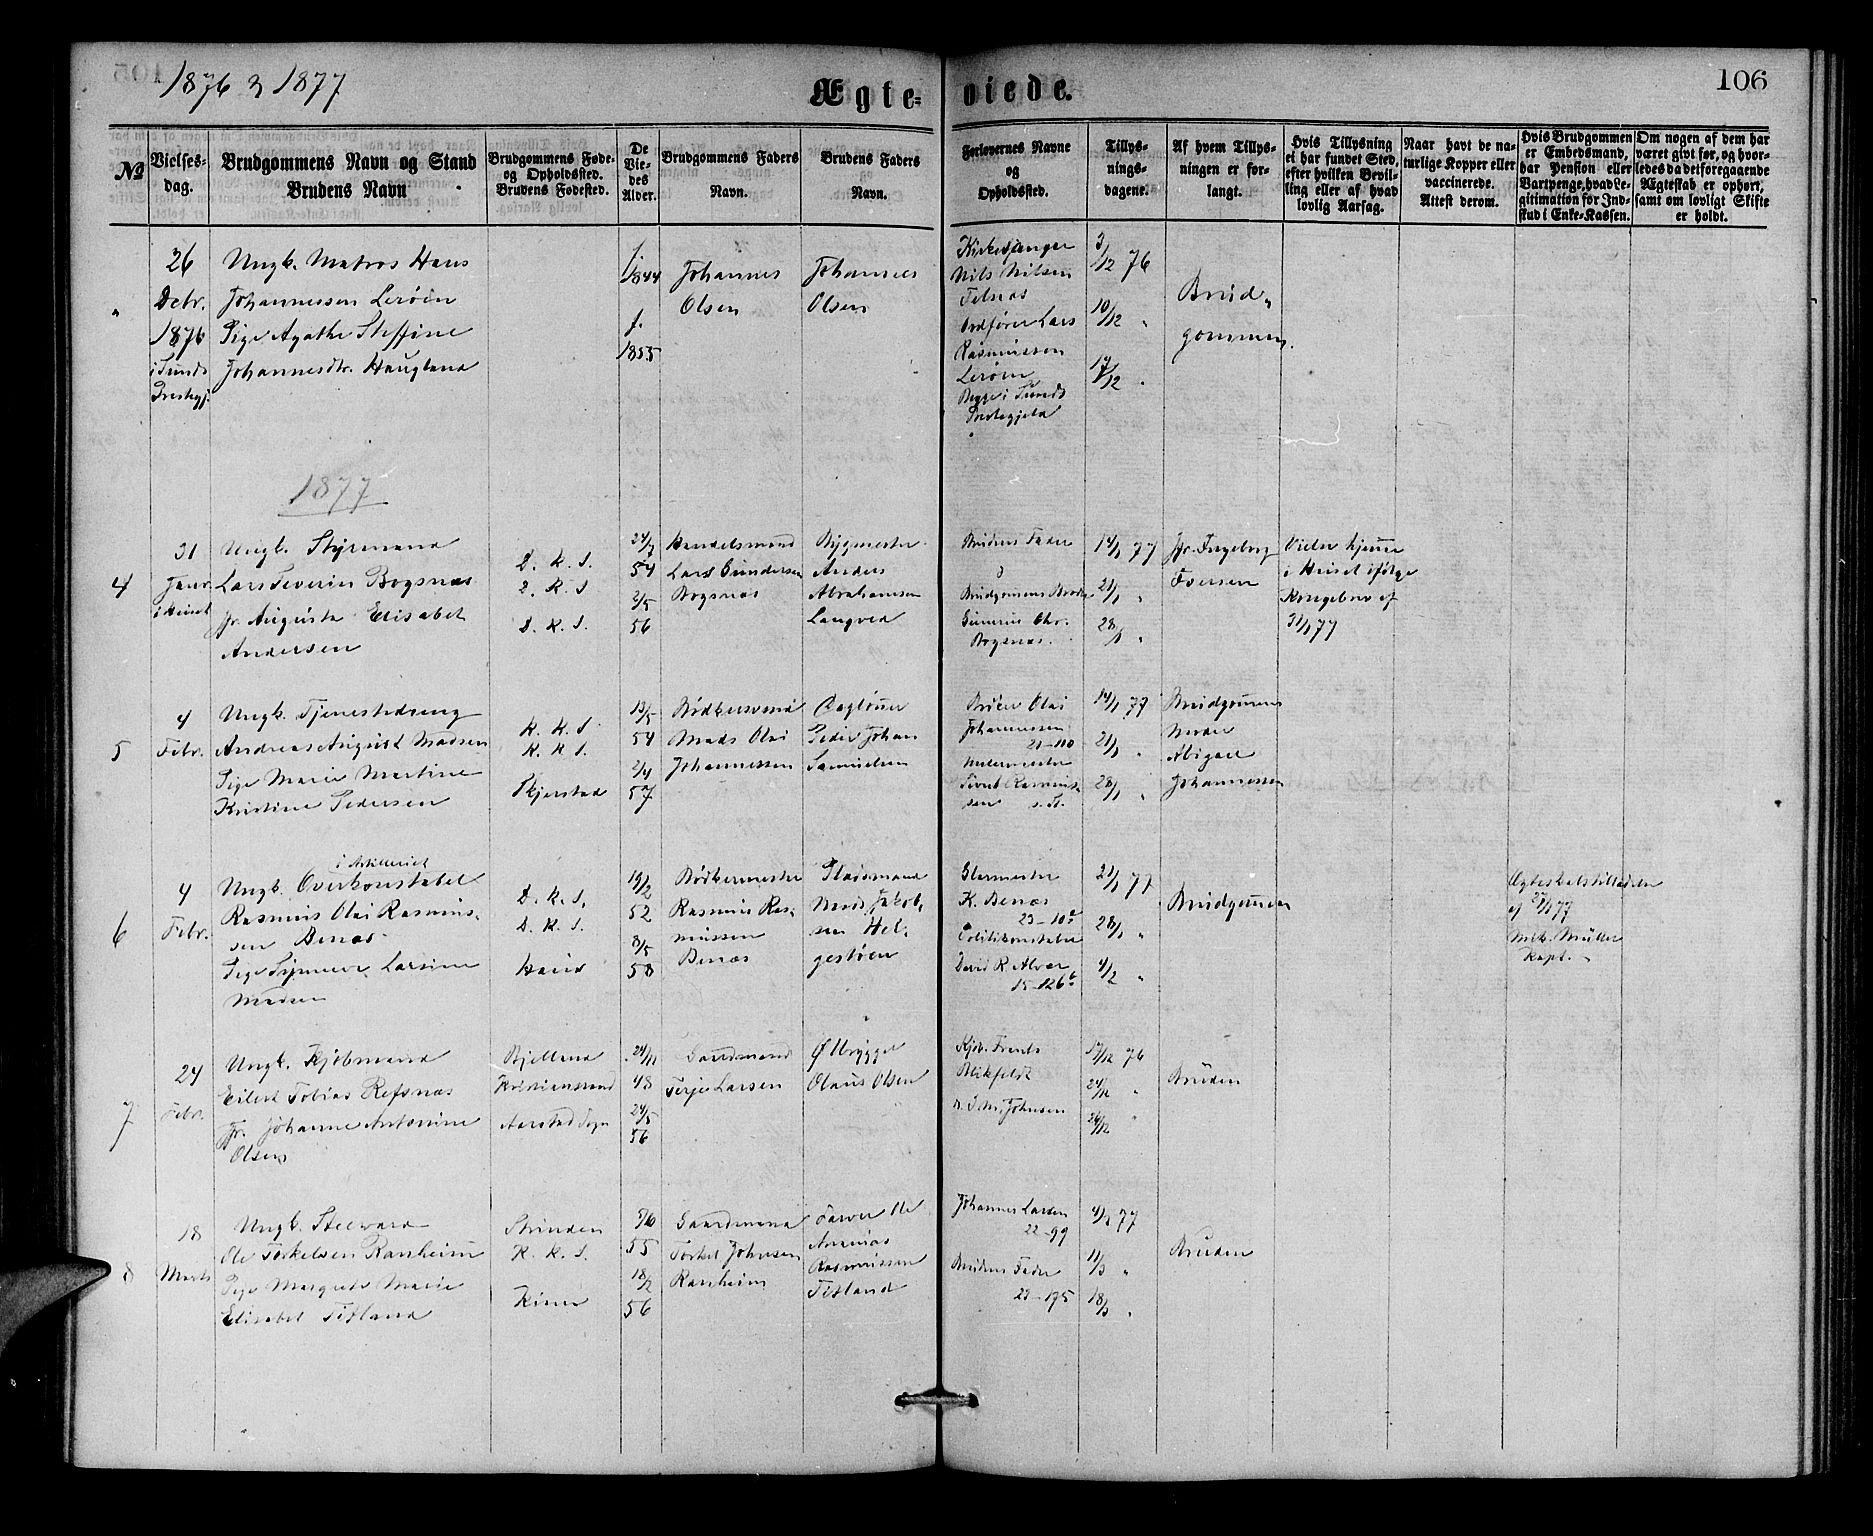 1876 & 1877
Ægte=viede.
106
No
Vielses-
dag.
Brudgommens Navn og Stand
Brudens Navn
Brudgommens Føde-
og Opholdssted.
Brudens Fødested.
De
Vie-
des
Alder.
Brudgommens Faders
Navn.
Brudens Faders
Navn.
Forlovernes Navne
og
Opholdssted.
Tillys-
nings-
dagene.
Af hvem Tillys-
ningen er for-
langt.
Hvis Tillysning
ei har fundet Sted,
efter hvilken Bevil-
ling eller af hvad
lovlig Aarsag.
Naar havt de na-
turlige Kopper eller
vaccinerede.
Attest derom.
Hvis Brudgommen
er Embedsmand,
har Pension eller
Vartpenge, hvad Le-
gitimation for Ind-
skud i Enke-Kassen.
Om nogen af dem har
været givt før, og hvor-
ledes da det foregaaende
Ægteskab er ophørt,
samt om lovligt Skifte
er holdt.
26
Decbr.
1876
i Sunds
Prestegj.
Ungk. Matros Hans
Johannessen Lerøen
Pige Agathe Steffine
Johannesdtr. Haugland
f.
1844
f.
1855
Johannes
Olsen
Johannes
Olsen
Kirkesanger
Nils Nilsen
Telnæs
Ordfører Lars
Rasmussen
Lerøen
Begge i Sunds
Prestegjeld
3/12 76
10/12 "
17/12 "
Brud-
gommen.
1877
4
31
Januar
i Huset
Ungk. Styrmand
Lars Severin Bogsnæs
Jfr. Augusta Elisabet
Andersen
D. K. S.
D. K. S
D. K. S.
54
2/5
56
Handelsmand
Lars Gundersen
Bogsnæs
Bygmester
Anders
Abrahamsen
Langved
Brudens Fader
Brudgomens Broder
Bogsnæs.
14/1 77
21/1 "
28/1 "
Jfr. Ingeborg
Iversen
Vielse hjemme
i Huset ifølge
Kongebrev af
31/1 77
5
4
Febr.
Ungk. Tjenestedreng
Andreas August Madsen
Pige Marie Martine
Kristine Pedersen
K. K. S.
K. K. S.
Skjerstad
13/5
54
2/4
57
Bødkersvend
Mads Olai
Johannessen
Dagløner
Peder Johan
Samuelsen
Olai
Johannessen
21-110
Murermester
Sivert Rasmus-
sen s. St.
14/1 77
21/1 "
28/1 "
Brudgommens
Moder
Abigael
Johannessen
6
4
Febr.
i Artilleriet
Ungk. Overkonstabel
Rasmus Olai Rasmus-
sen Benæs
Pige Synneve Larsine
Madsen
D. K. S.
D. K. S.
Haus
19/2
52
8/5
58
Bødkermester
Rasmus Ras-
mussen
Benæs
Pladsmand
Mads Jakob-
sen Hel-
gestøen
Glarmester
K. Benæs
23-10
Politikonstabel
David R. Alver
15-126
21/1 77
28/1 "
4/2 "
Brudgommen
Ægteskabstilladelse
af 27/1 77
Müller
Kapt.
7
24
Febr.
Ungk. Kjøbmand
Eilert Tobias Refsnæs
Jfr. Johanne Antonine
Olsen
Bjelland
Kristianssand
Aarstad Sogn
24/11
48
24/5
56
Gaardmand
Terje Larsen
Ølbrygger
Olaus Olsen
Kjøb. Frents
Blikfeldt
Johnsen
17/12 76
24/12 "
26/12 "
Bruden
8
18
Marts
Ungk. Steward
Ole Torkelsen Ranheim
Pige Margrete Marie
Elisabet Titland
Strinden
K. K. S.
Kinn
55
18/2
56
Gaardmand
Torkel Johnsen
Ranheim
Farver Ole
Ananias
Rasmussen
Titland
Johannes Larsen
22-99
Brudens Fader
23-195
4/3 77
11/3 "
18/3 "
Bruden